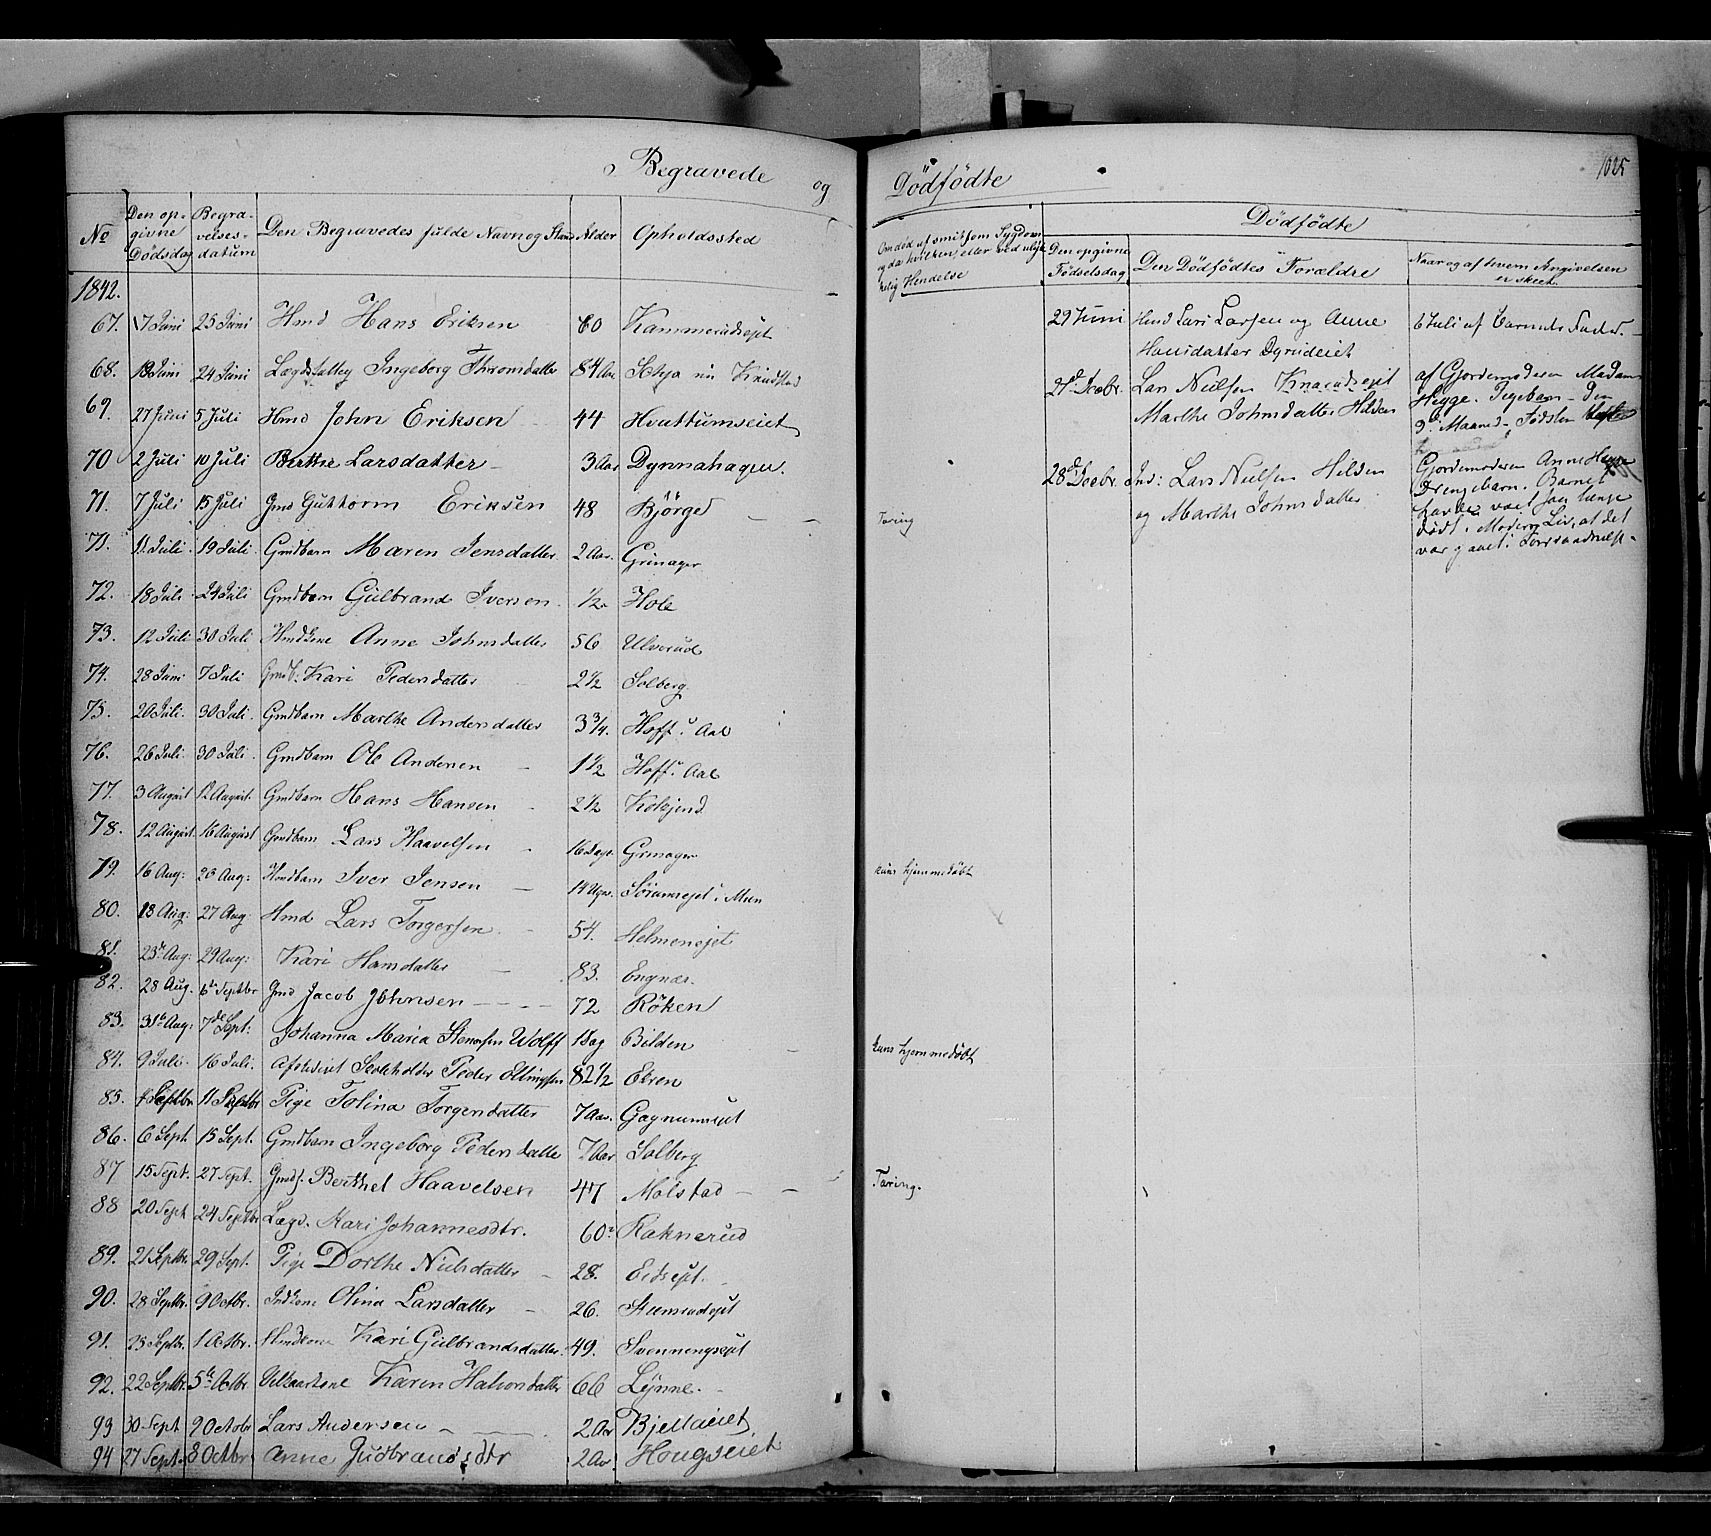 Begravede og Dödfödte
1025
No
Den opgivne Dödsdag
Begravelses-datum
Den Begravedes fulde Navn og Stand
Alder
Opholdssted
Om död af smitsom Sygdom og da hvilken, eller ved ulykkelig Hendelse
Dödfödte
Den opgivne Födselsdag
Den Dödfödtes Forældre
Naar og af hvem Angivelsen er skeet.
1842.
67. 17 Juni 25 Juni Hmd Hans Eriksen 60 Kammerudsejet
68. 13 Juni 24 Juni Ingeborg Thronsdatter 84 Aar
69. 27 Juni 5 Juli Hmd John Eriksen 44 Hvattumseiet
70 2 Juli 10 Juli Berthe Larsdatter 3 Aar Dynnahagen.
71. 7 Juli 15 Juli Gmd Guttorm Eriksen 48 Björge Taring
71. 11 Juli 19 Juli Gmdbarn Maren Jensdatter 2 Aar. Grinager
72. 18 Juli 24 Juli Gmdbarn Gulbrand Iversen 1/2 Hole
73. 12 Juli 30 Juli Hmdkone Anne Johnsdatter 56 Ulverud
74. 28 Juni 7 Juli Gmdb. Kari Pedersdatter 2 1/2 Solberg.
75. 20 Juli. 30 Juli. Gmdbarn Marthe Andersdatter 3 3/4. Hoff i Aal
76. 26 Juli 30 Juli Gmdbarn Ole Andersen 1 1/2 Hoff i Aal
77. 3 August 12 August. Gmdbarn Hans Hansen 2 1/2
78. 12 August. 16 August Gmdbarn Lars Haavelsen 16 Dage Grinager
79. 16 Aug: 20 Aug: Hmdbarn Iver Jensen 14 Uger. kuns hjemmedöbt
80. 18 Aug: 27 Aug: Hmd Lars Torgersen 54. Helmenejet
81. 23de Aug: 29 Aug: Kari Hansdatter 83. Engnæs.
82. 28 Aug. 6te Septbr Gmd Jacob Johnsen 72 Röken
83. 31te Aug: 7de Sept: Johanna Maria Wolff 1 Dag Bilden kuns hjemmedöbt
84. 9 Juli. 16 Juli. Skoleholder Peder Ellingsen 82 1/2 Ekren
85. 4 Septbr 11 Septbr Pige Tolina Torgersdatter 7 Aar. Gagnumsejet
86. 6 Sept. 15 Sept. Gmdbarn Ingeborg Pedersdatter 7 Aar Solberg
87 15 Sept. 27 Sept. Gmds. Berthel Haavelsen 47 Molstad Taring.
88 20 Sept 24 Septbr Lægd. Kari Johannesdtr. 60 Raknerud
89. 21 Septbr. 29 Sept. Pige Dorthe Nielsdatter 28. Eidsejet.
90. 28 Septbr. 9 Octbr. Indkone Olina Larsdatter 26.
91. 25 Septbr. 1 Octbr. Hmdkone Kari Gulbrandsdatter. 49. Svenningsejet
92. 22 Septbr. 5te Octbr Karen Halvorsdatter 66 Lynne.
93 30 Sept 9 Octobr Lars Andersen 2 Aar Bjellaeiet
94 27 Sept. 8 Octbr Anne Gudbrandsdtr 2 Aar Hougseiet
29 Juni Hmd Lars Larsen og Anne Hansdatter Dynneiet 6 Juli af Barnets Fader.
21de Decbr. Lars Nielsen Marthe Johnsdatter Hilden af Gjordemoderen Madam Hegge. Pigebarn. Den 9de Maaned. Födslen
28de Decbr. Ind: Lars Nielsen Hilden og Marthe Johnsdatter Gjordemoderen Anne Drengebarn. Barnet havde vært saa længe dödt i Moders Liv, at det var gaaet i Forraadnelse.